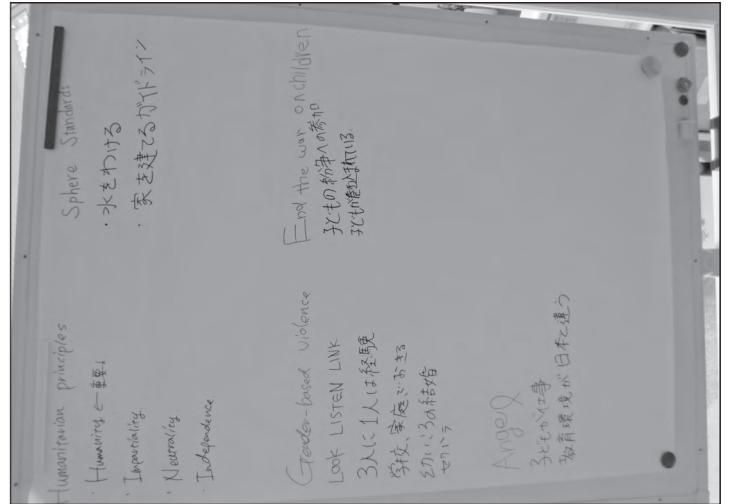 Humanitarian principles
・Humanity ← 重要!
・Impartiality
・Neutrality
・Independence
Sphere Standards
・水をわける
・家を建てるガイドライン
Gender-based violence
LOOK LISTEN LINK
3人に1人は経験
学校、家庭でおきる
幼いころの結婚
セクハラ
End the war on children
子どもの紛争への参加
子どもが巻き込まれている
Angel
子どもが仕事
教育環境が日本と違う